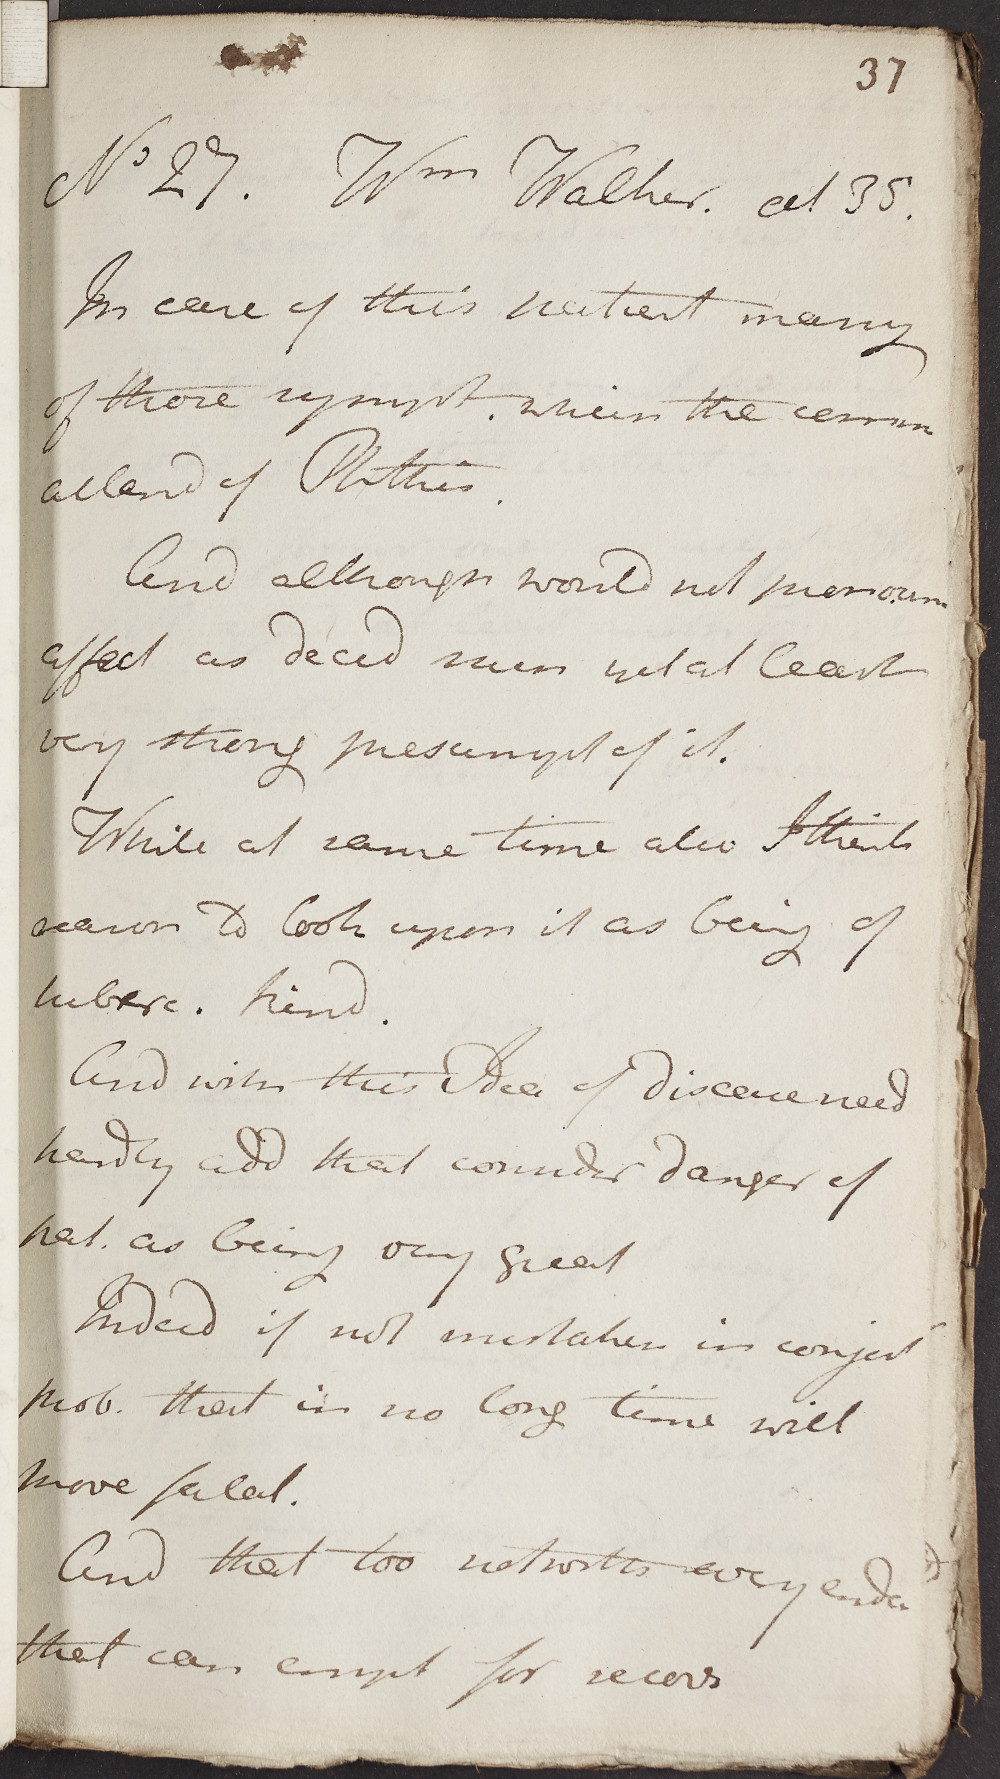 37
No 27. Wm Walker. aet 35.
In case of this patient many
of those sympt. which the comm
attend of Phthisis.
And although would not pronoun
affect as decid such yet at least
very strong presumpt of it.
While at same time also I think
reason to look upon it as being of
tuberc. kind.
And with this Idea of disease need
hardly add that consider danger of
pat. as being very great
Indeed if not mistaken in conject
prob. that in no long time will
prove fatal.
And that too notwith every endea
that can empt for recov